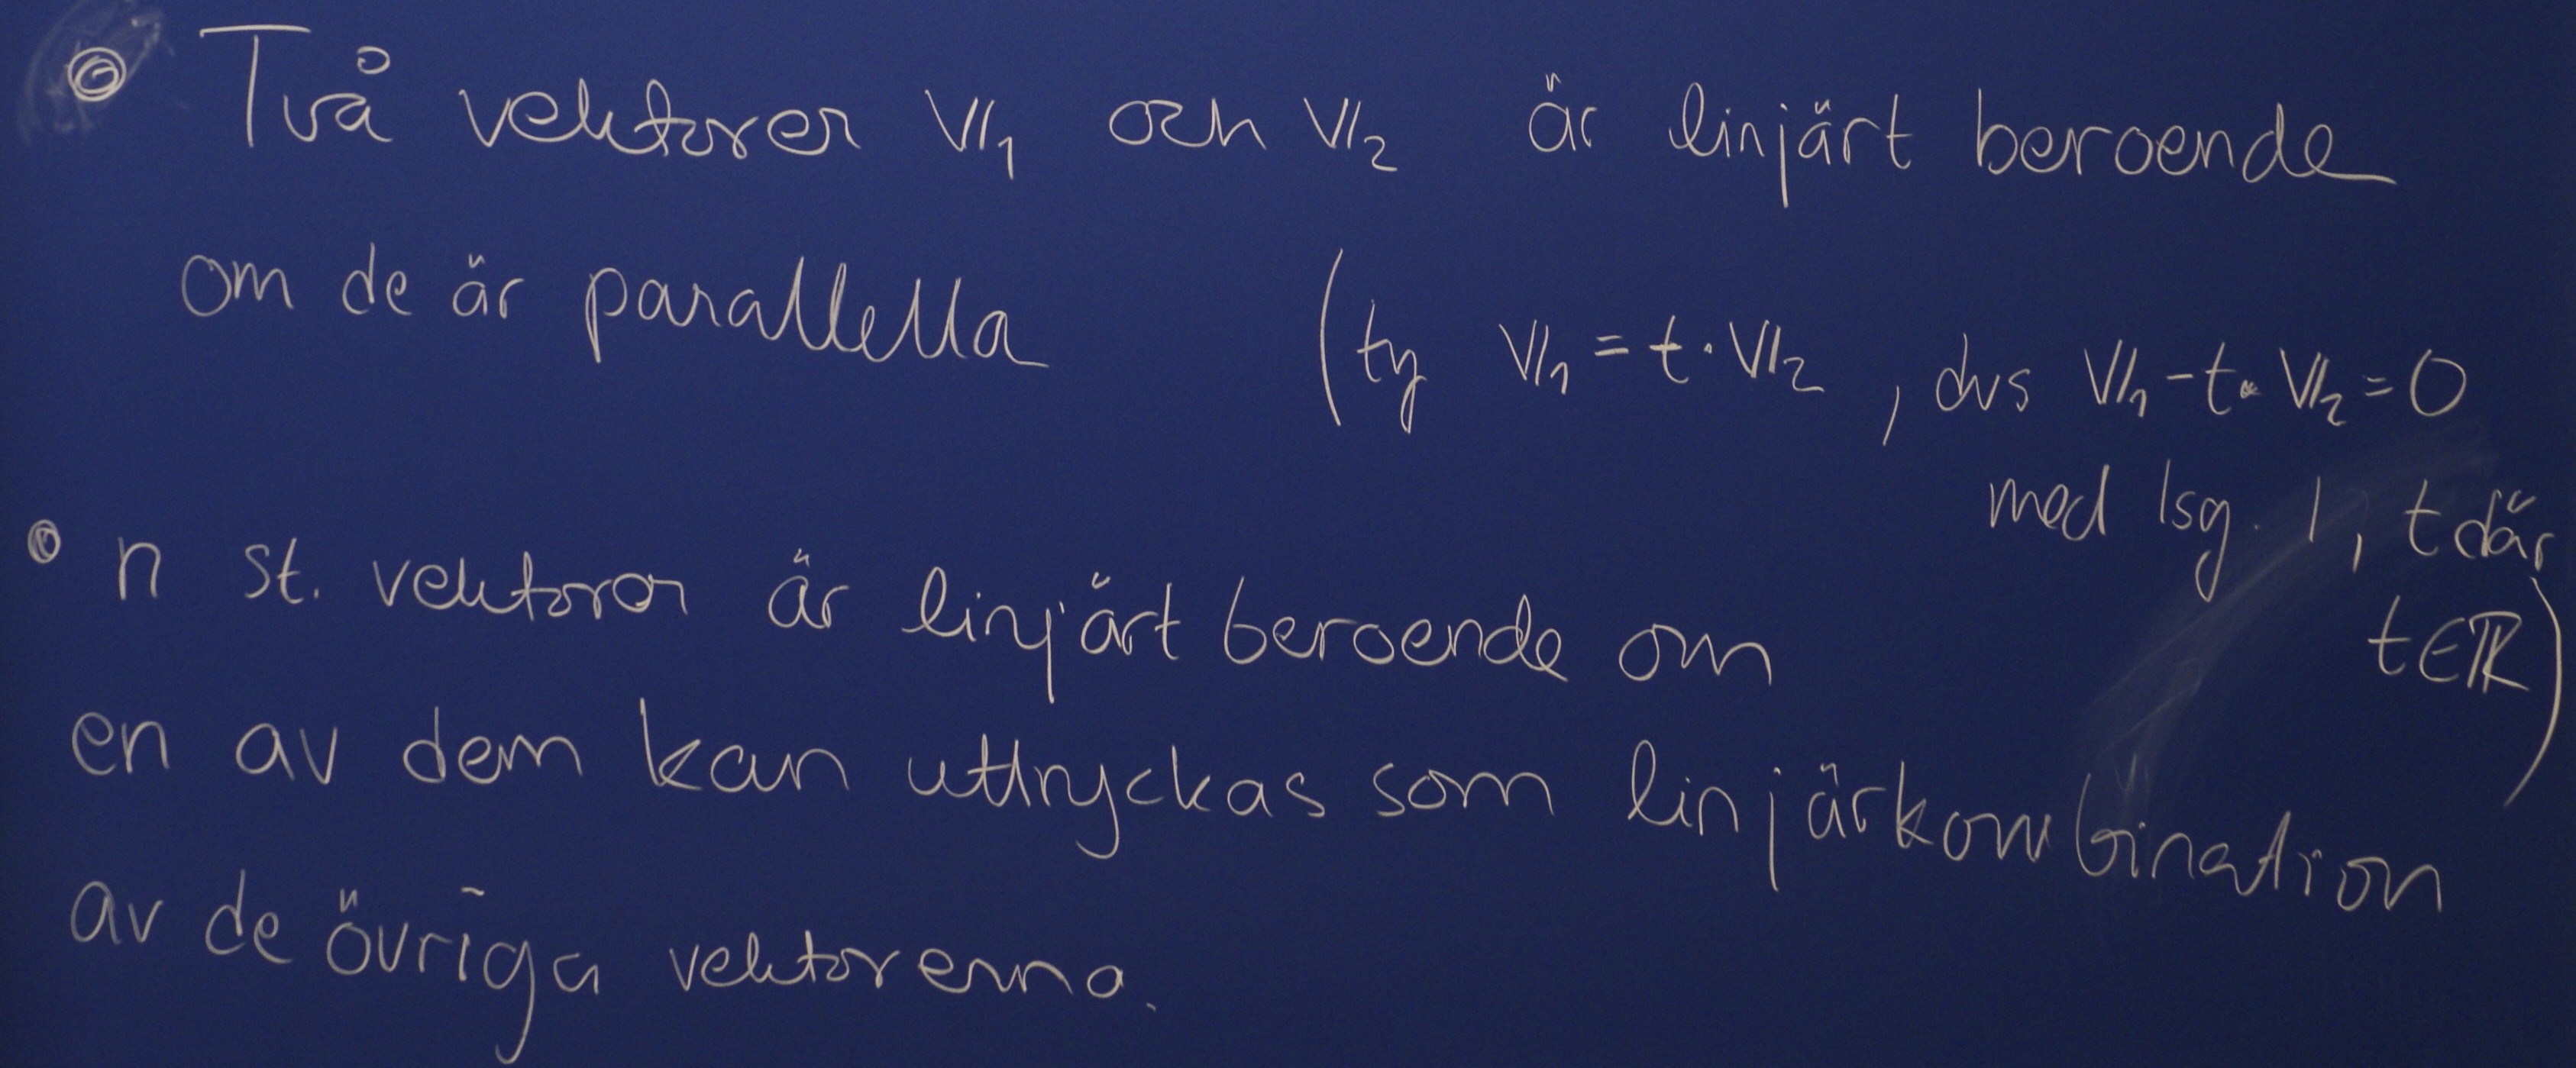 • Två vektorer 𝕍₁ och 𝕍₂ är linjärt beroende
om de är parallella (ty 𝕍₁ = t · 𝕍₂, dvs 𝕍₁ - t · 𝕍₂ = 0
med lsg. 1, t där
t ∈ ℝ)
• n st. vektorer är linjärt beroende om
en av dem kan uttryckas som linjärkombination
av de övriga vektorerna.